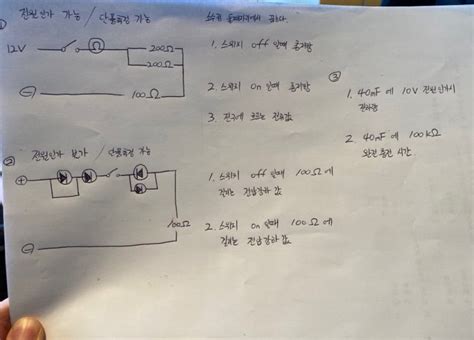 ① 전원인가 가능 / 단품측정 가능
12V
Ω
200Ω
200Ω
100Ω
⊖
1. 스위치 off 일때 총저항
2. 스위치 on 일때 총저항
3. 전구에 흐르는 전류값
② 전원인가 불가 / 단품측정 가능
⊕
100Ω
⊖
1. 스위치 off 일때 100Ω에
걸리는 전압강하 값
2. 스위치 on 일때 100Ω에
걸리는 전압강하 값.
③
1. 40mF 에 10V 전원인가시
전하량
2. 40mF 에 100kΩ
완전충전 시간.